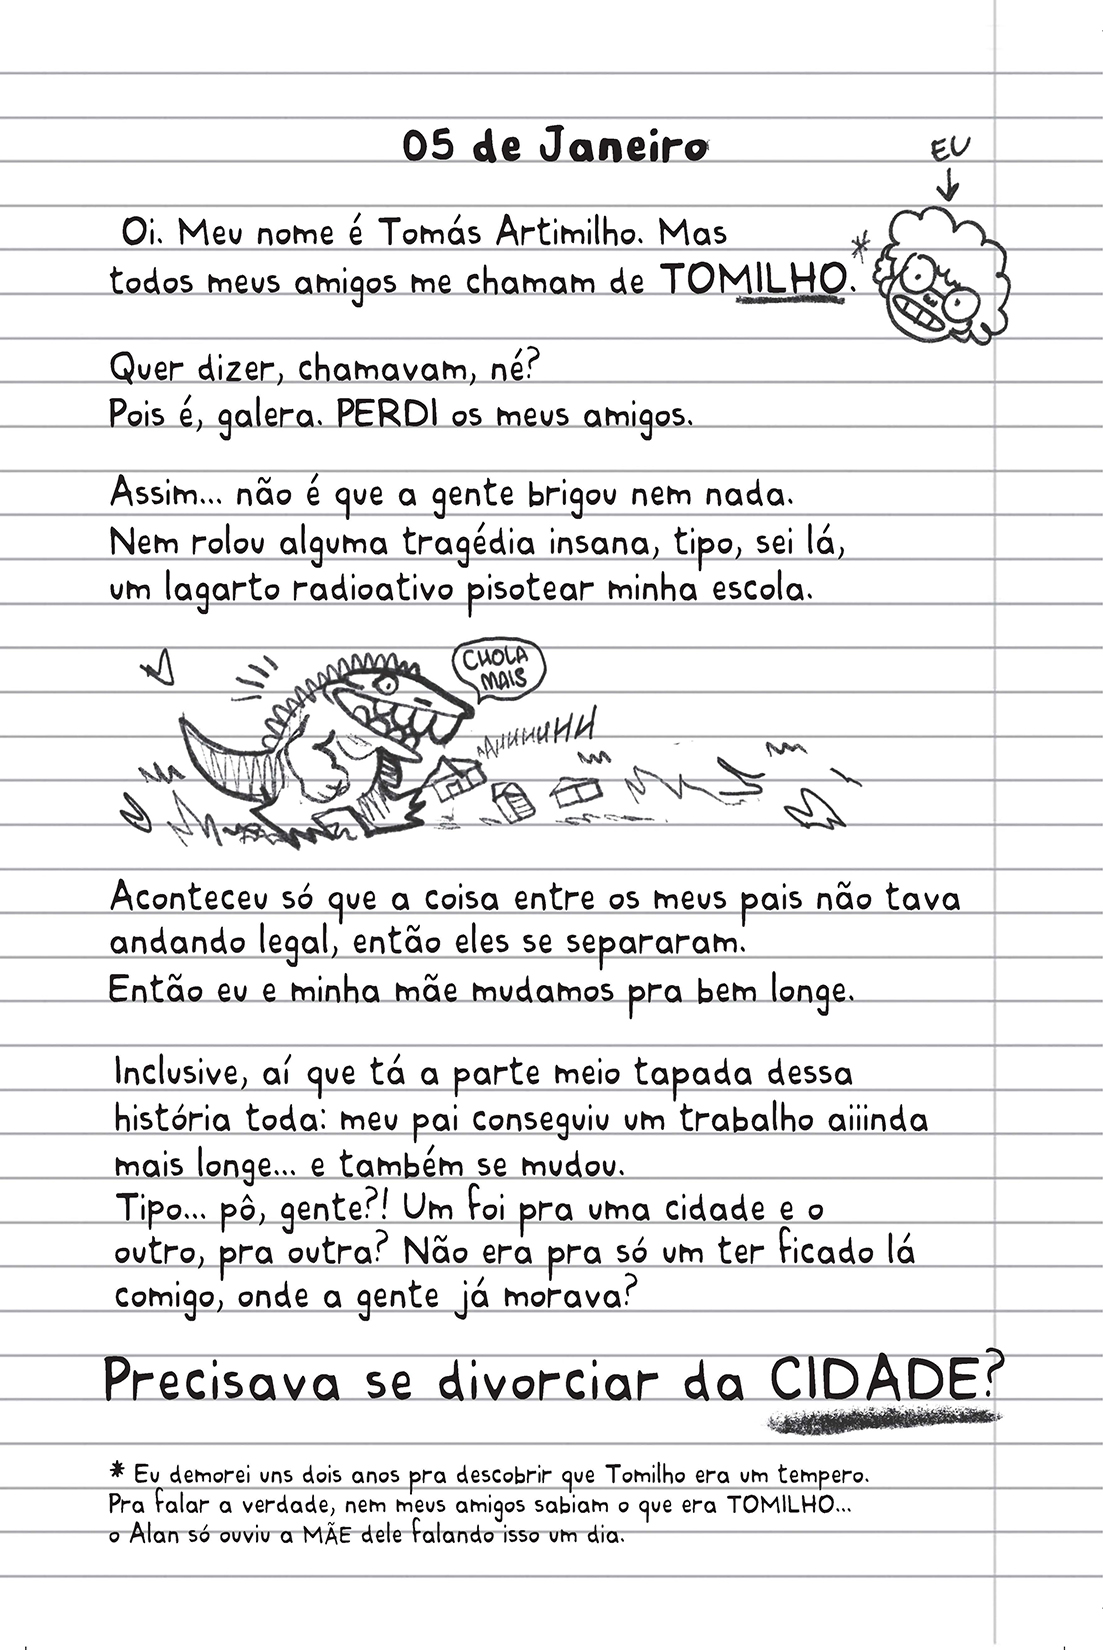 05 de Janeiro
EU
Oi. Meu nome é Tomás Artimilho. Mas
todos meus amigos me chamam de TOMILHO.*
Quer dizer, chamavam, né?
Pois é, galera. PERDI os meus amigos.
Assim... não é que a gente brigou nem nada.
Nem rolou alguma tragédia insana, tipo, sei lá,
um lagarto radioativo pisotear minha escola.
CHOLA
MAIS
AHUUUUHH
Aconteceu só que a coisa entre os meus pais não tava
andando legal, então eles se separaram.
Então eu e minha mãe mudamos pra bem longe.
Inclusive, aí que tá a parte meio tapada dessa
história toda: meu pai conseguiu um trabalho aiiinda
mais longe... e também se mudou.
Tipo... pô, gente?! Um foi pra uma cidade e o
outro, pra outra? Não era pra só um ter ficado lá
comigo, onde a gente já morava?
Precisava se divorciar da CIDADE?
* Eu demorei uns dois anos pra descobrir que Tomilho era um tempero.
Pra falar a verdade, nem meus amigos sabiam o que era TOMILHO...
o Alan só ouviu a MÃE dele falando isso um dia.